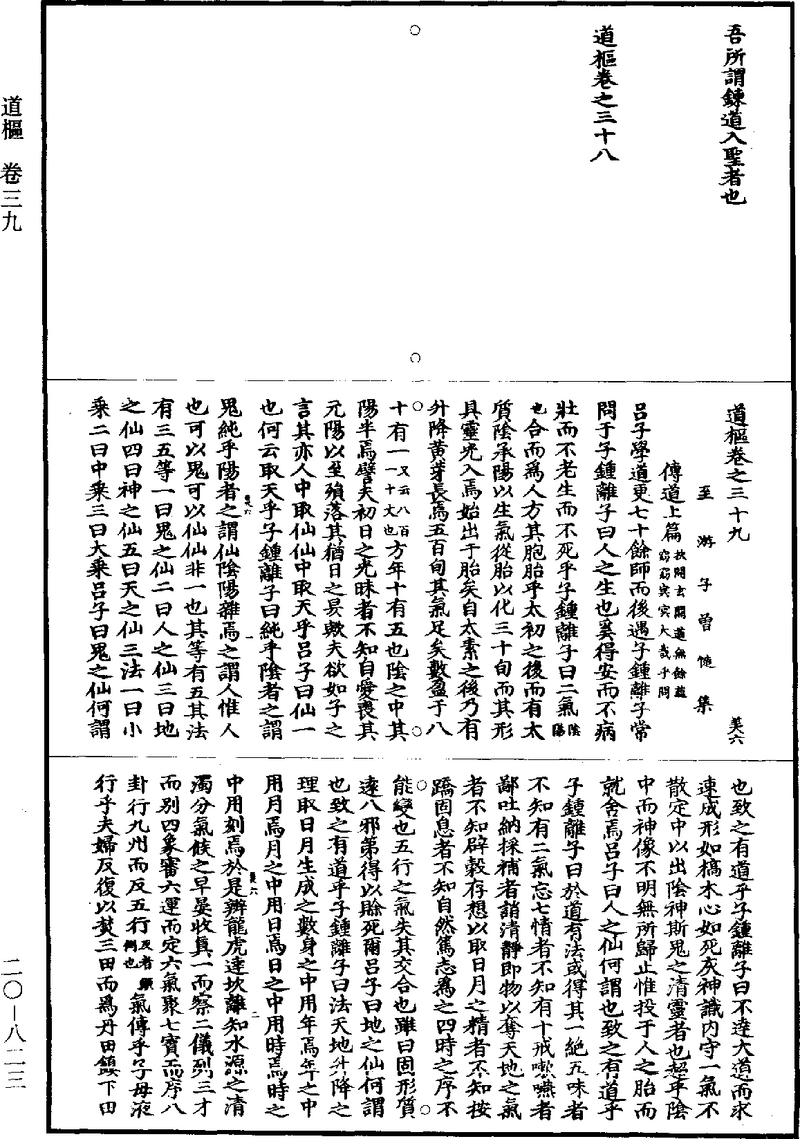 道樞　卷三九
二〇-八二三
吾所謂鍊道入聖者也
道樞卷之三十八
道樞卷之三十九　美六
至游子曾慥集
傳道上篇 抉開玄關道無餘蘊 窈窈冥冥大哉乎問
呂子學道更七十餘師而後遇子鍾離子常
問于子鍾離子曰人之生也奚得安而不病
壯而不老生而不死乎子鍾離子曰二氣 陰陽
也合而爲人方其胞胎乎太初之後而有太
質陰承陽以生氣從胎以化三十旬而其形
具靈光入焉始出于胎矣自太素之後乃有
升降黃芽長焉五百旬其氣足矣數盈于八
十有一 又云八百一十丈也 方年十有五也陰之中其
陽半焉譬夫初日之光昧者不知自愛喪其
元陽以至殞落其猶日之昃歟夫欲如子之
言其亦人中取仙仙中取天乎呂子曰仙一
也何云取天乎子鍾離子曰純乎陰者之謂
鬼純乎陽者之謂仙陰陽雜焉之謂人惟人
也可以鬼可以仙仙非一也其等有五其法
有三五等一曰鬼之仙二曰人之仙三曰地
之仙四曰神之仙五曰天之仙三法一曰小
乘二曰中乘三曰大乘呂子曰鬼之仙何謂
也致之有道乎子鍾離子曰不達大道而求
速成形如槁木心如死灰神識內守一氣不
散定中以出陰神斯鬼之清靈者也超乎陰
中而神像不明無所歸止惟投于人之胎而
就舍焉呂子曰人之仙何謂也致之有道乎
子鍾離子曰於道有法或得其一絕五味者
不知有二氣忘七情者不知有十戒嗽嚥者
鄙吐納採補者誚清靜即物以奪天地之氣
者不知辟穀存想以取日月之精者不知按
蹻固息者不知自然篤志爲之四時之序不
能變也五行之氣失其交合也雖曰固形質
遠八邪第得以賒死爾呂子曰地之仙何謂
也致之有道乎子鍾離子曰法天地升降之
理取日月生成之數身之中用年焉年之中
用月焉月之中用日焉日之中用時焉時之
中用刻焉於是辨龍虎達坎離知水源之清
濁分氣候之早晏收真一而察二儀列三才
而別四象審六運而定六氣聚七寶而序八
卦行九州而反五行 反者顛倒也 氣傳乎子母液
行乎夫婦反復以焚三田而爲丹田鎮下田